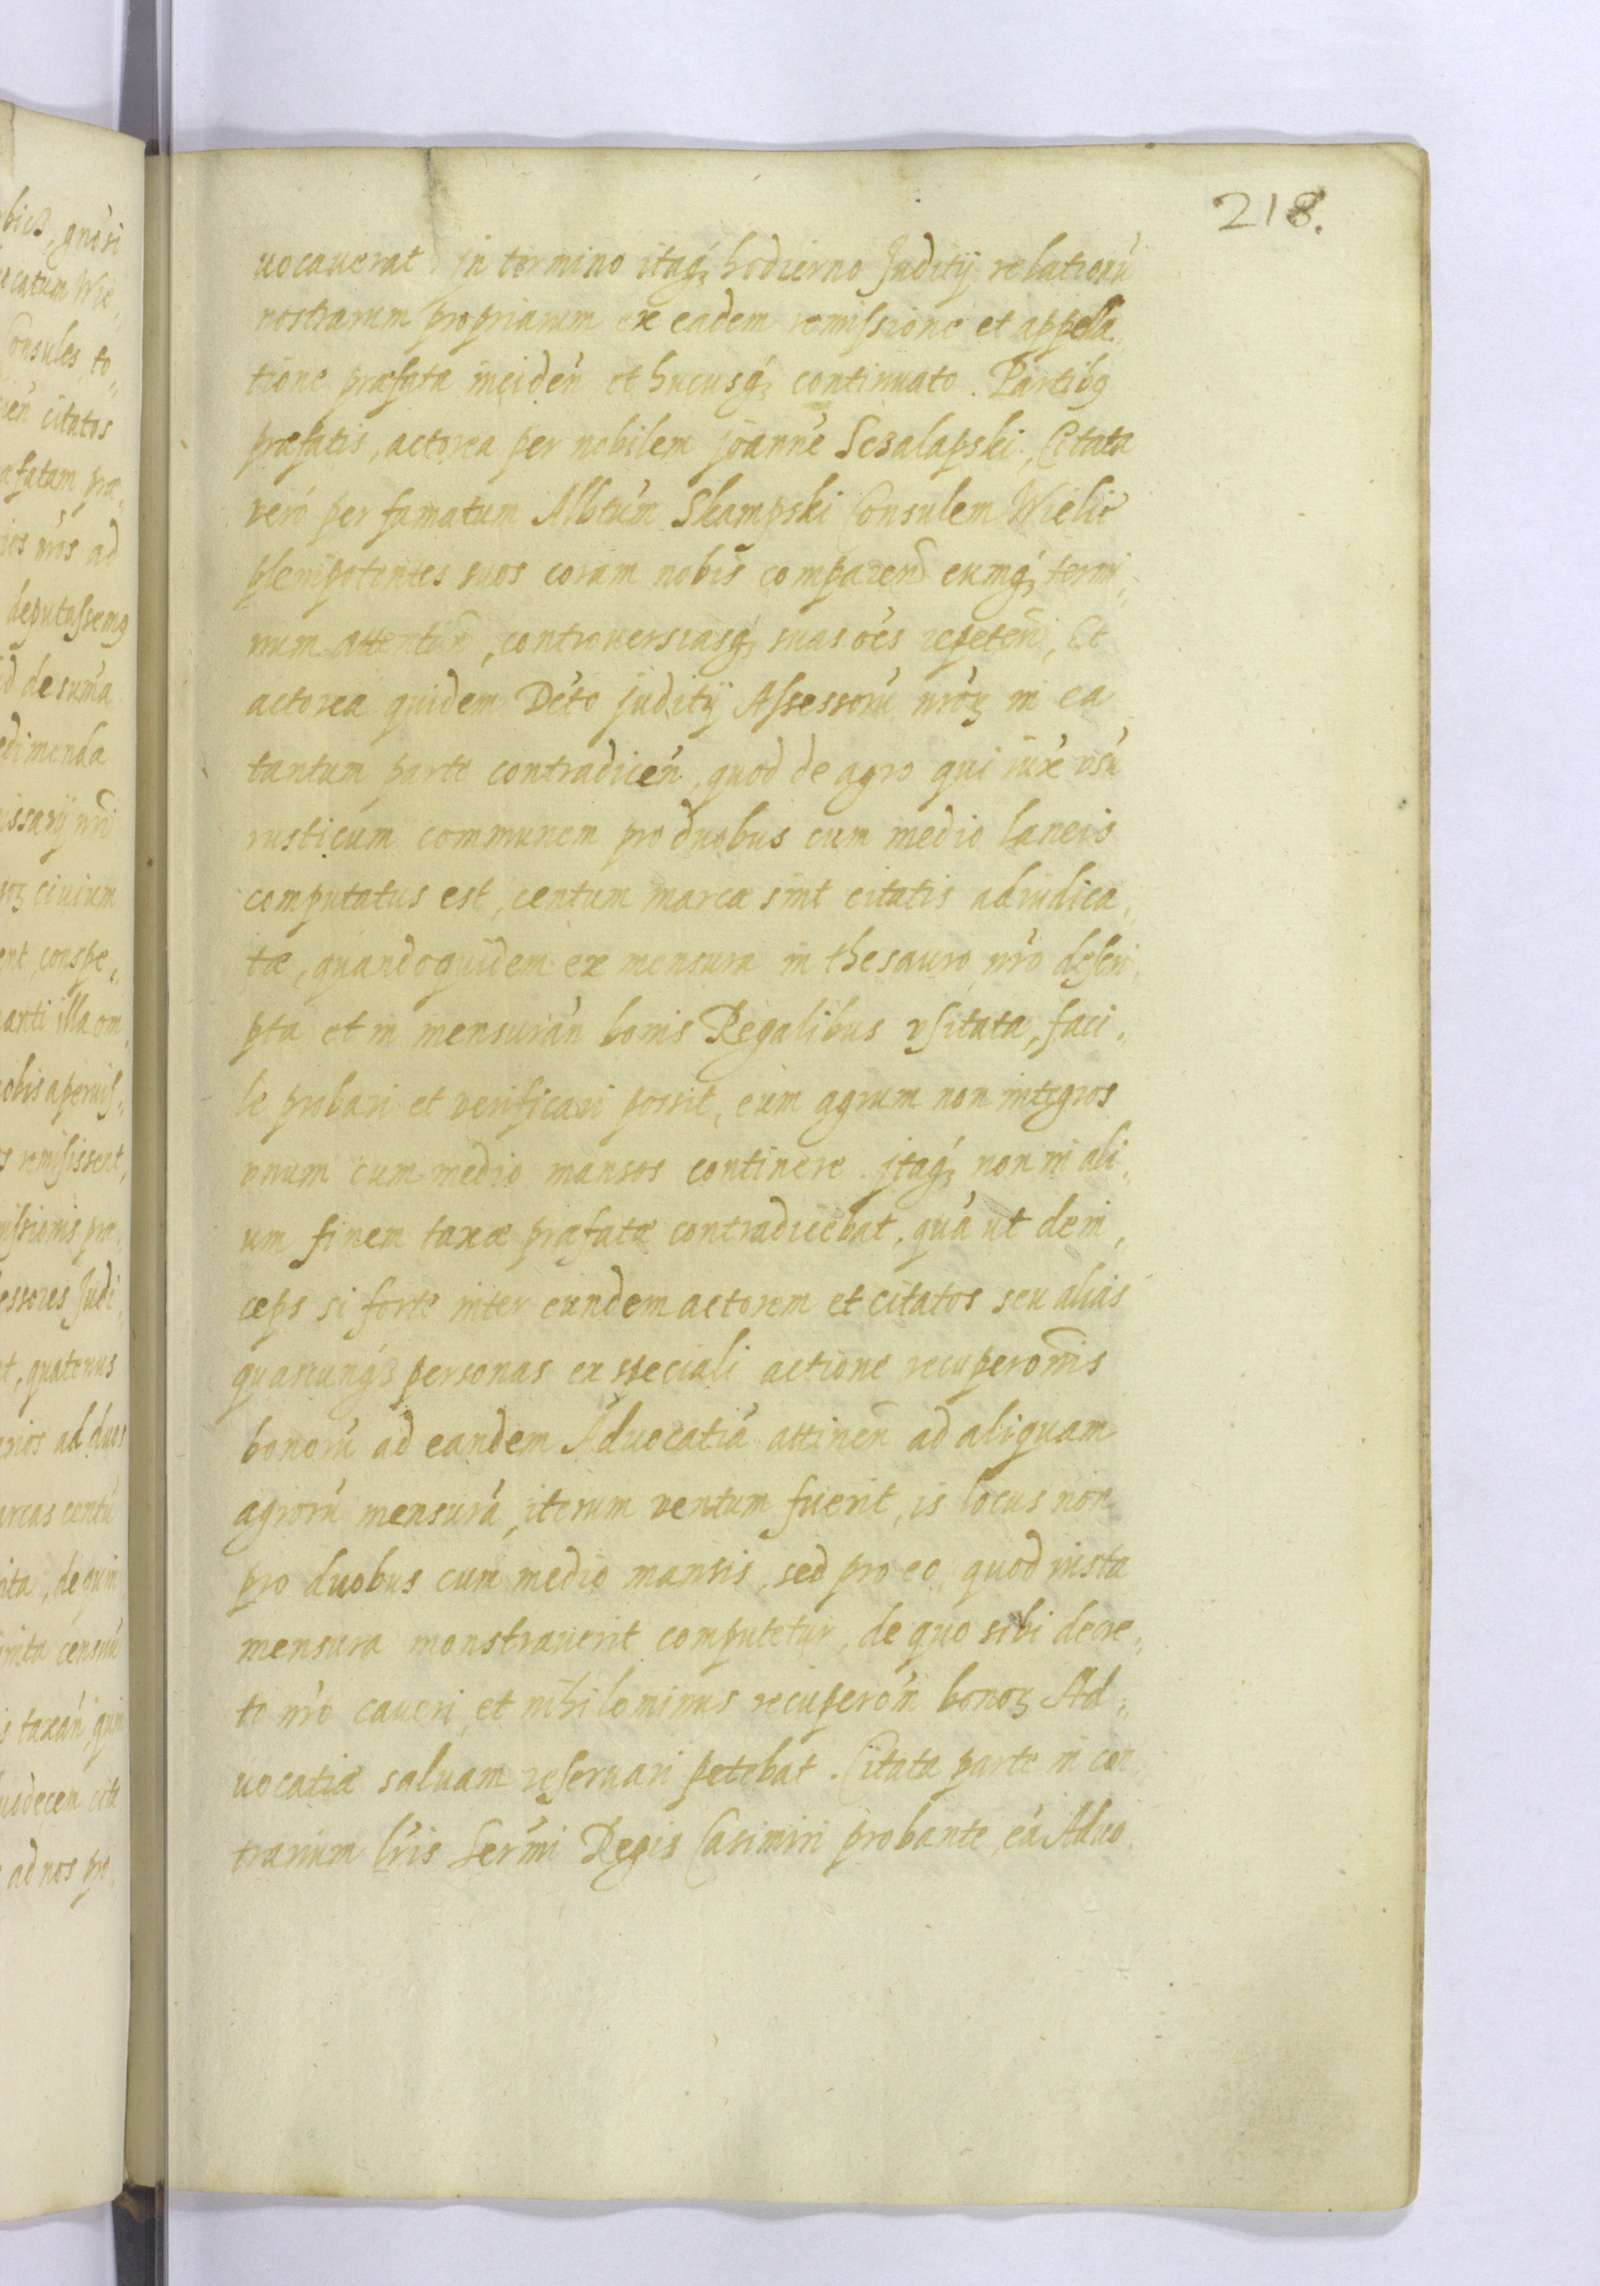 218.
uocauerat jn termino itaq; hodierno Juditij relationũ
nostrarum propriarum ex eadem remissione et appella„
tione præfata inciden̄ et hucusq; continuato. Partibꝯ
præfatis, actorea per nobilem joannē Sczalapski, Citata
verò per famatum Albtũm Skampski Consulem Wielic̄
plenipotentes suos coram nobis comparen̄ eumq; termi„
num attentan̄, controuersiasq; suas oẽs repeten̄, Et
actorea quidem Dẽto juditij Assessorũ nr̃oꝝ in ea
tantum parte contradicen̄, quod de agro qui iuxẽ vsũ
rusticum communem pro duobus cum medio laneis
computatus est, centum marcæ sint citatis adiudica„
tæ, quandoquidem ex mensura in thesauro nr̃o descri„
pta et in mensuran̄ bonis Regalibus vsitata, faci„
le probari et verificari possit, eum agrum non integros
vnum cum medio mansos continere. jtaq; non in ali„
um finem taxæ præfatæ contradicebat, quã ut dein„
ceps si forte inter eundem actorem et citatos seu alias
quascunq; personas ex speciali actione recuperõnis
bonorũ ad eandem Aduocatiã attinen̄ ad aliquam
agrorũ mensurã, iterum ventum fuerit, is locus non
pro duobus cum medio mansis, sed pro eo, quod iusta
mensura monstrauerit computetur, de quo sibi decre„
to nr̃o caueri, et nihilominus recuperõn̄ bonoꝝ Ad„
uocatiæ saluam reseruari petebat. Citata parte in con„
trarium lr̃is Serm̃i Regis Casimiri probante, eã Aduo